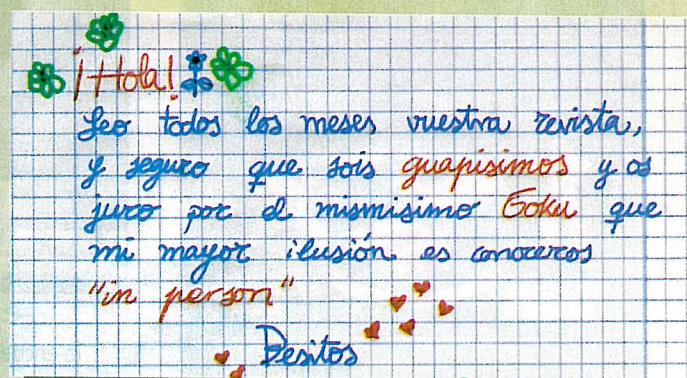 ¡Hola!
Leo todos los meses vuestra revista,
y seguro que sois guapisimos y os
juro por el mismisimo Goku que
mi mayor ilusión es conoceros
"in person"
Besitos